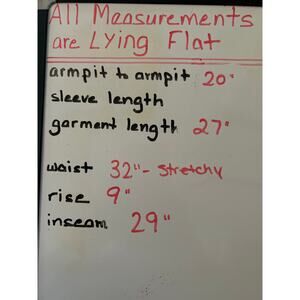 All Measurements
are Lying Flat
armpit to armpit 20"
sleeve length
garment length 27"
waist 32"- stretchy
rise 9"
inseam 29"